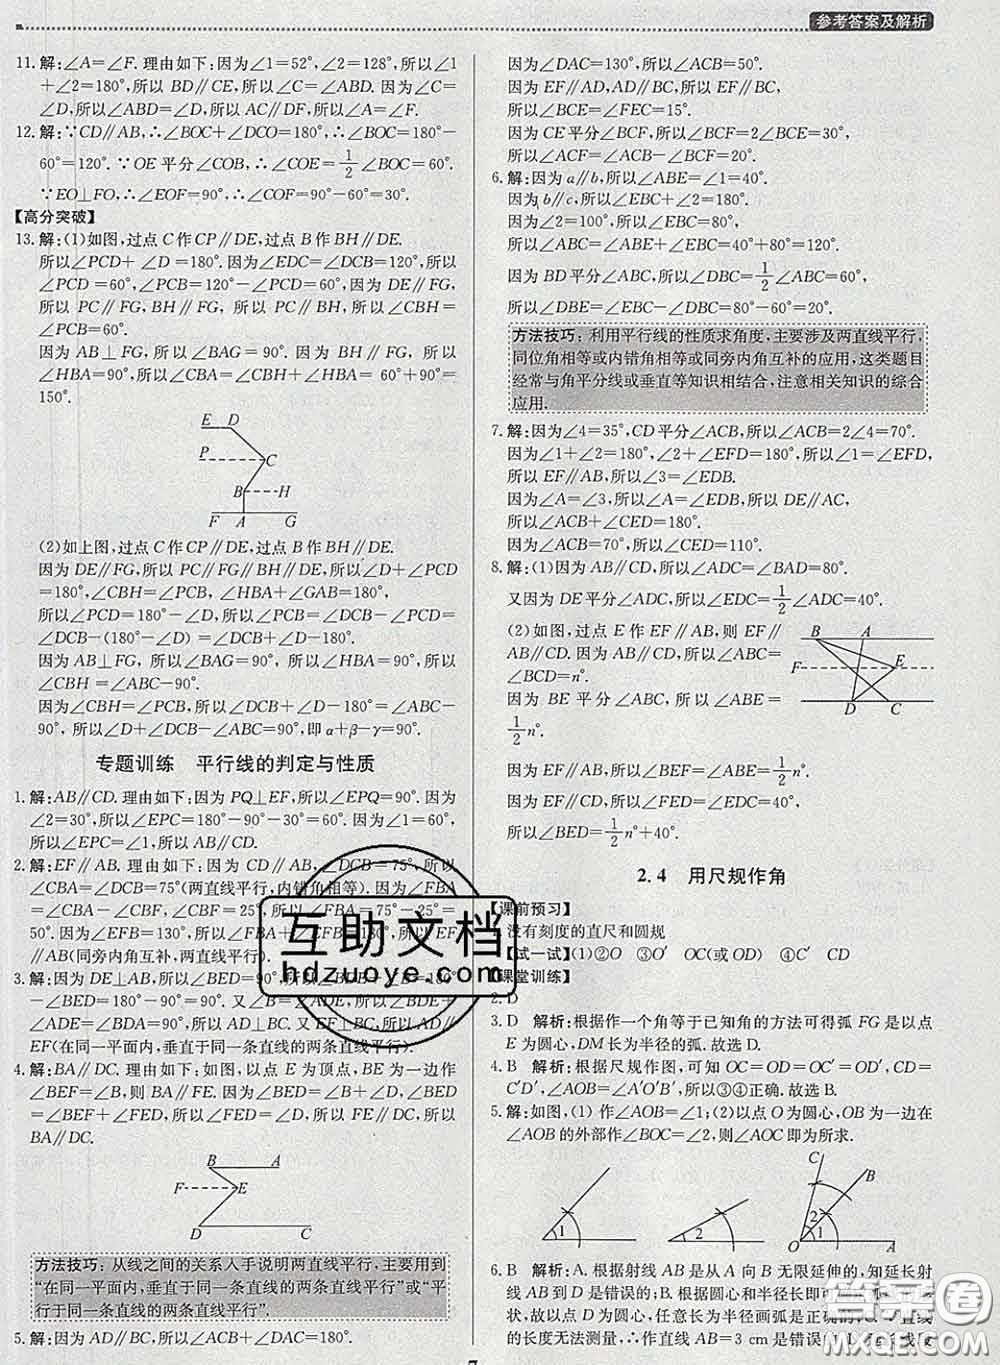 参考答案及解析
11.解:∠A=∠F.理由如下:因为∠1=52°,∠2=128°,所以∠1
+∠2=180°,所以 BD∥CE,所以∠C=∠ABD.因为∠C=
∠D,所以∠ABD=∠D,所以 AC∥DF,所以∠A=∠F.
12.解:∵CD∥AB,∴∠BOC+∠DCO=180°,∴∠BOC=180°-
60°=120°.∵OE 平分∠COB,∴∠COE=1/2∠BOC=60°.
∵EO⊥FO,∴∠EOF=90°,∴∠COF=90°-60°=30°.
【高分突破】
13.解:(1)如图,过点 C 作 CP∥DE,过点 B 作 BH∥DE.
所以∠PCD+∠D=180°.因为∠EDC=∠DCB=120°,所以
∠PCD=60°,∠PCB=120°-60°=60°.因为 DE∥FG,
所以 PC∥FG,BH∥FG,所以 PC∥BH,所以∠CBH=
∠PCB=60°.
因为 AB⊥FG,所以∠BAG=90°.所以∠HBA=90°,
所以∠CBA=∠CBH+∠HBA=60°+90°=
150°.
E D
P C
B H
F A G
(2)如上图,过点 C 作 CP∥DE,过点 B 作 BH∥DE.
因为 DE∥FG,所以 PC∥FG∥BH,所以∠D+∠PCD
=180°,∠CBH=∠PCB,∠HBA+∠GAB=180°,
所以∠PCD=180°-∠D,所以∠PCB=∠DCB-∠PCD=
∠DCB-(180°-∠D)=∠DCB-180°+∠D.
因为 AB⊥FG,所以∠BAG=90°,所以∠HBA=90°,所以
∠CBH=∠ABC-90°.
因为∠CBH=∠PCB,所以∠DCB-180°+∠D=∠ABC-
90°,所以∠D+∠DCB-∠ABC=90°,即 α+β-γ=90°.
专题训练 平行线的判定与性质
1.解:AB∥CD.理由如下:因为 PQ⊥EF,所以∠EPQ=90°.因为
∠2=30°,所以∠EPC=180°-90°-30°=60°.因为∠1=60°,
所以∠EPC=∠1,所以 AB∥CD.
2.解:EF∥AB.理由如下:因为 CD∥AB,∠DCB=75°,所以
∠CBA=∠DCB=75°(两直线平行,内错角相等).因为∠FBA
=∠CBA-∠CBF,∠CBF=25°,所以∠FBA=75°-25°=
50°.因为∠EFB=130°,所以∠FBA+∠EFB=180°,所以 EF
∥AB(同旁内角互补,两直线平行).
3.解:因为 DE⊥AB,所以∠BED=90°,所以∠B+∠BDE=180°
-∠BED=180°-90°=90°.又∠A=∠B,所以∠BDE+
∠ADE=∠BDA=90°,所以 AD⊥BC.又 EF⊥BC,所以 AD∥
EF(在同一平面内,垂直于同一条直线的两条直线平行).
4.解:BA∥DC.理由如下:如图,以点 E 为顶点,BE 为一边作
∠BEF=∠B,则 EF∥BA.因为∠BED=∠B+∠D,∠BED=
∠BEF+∠FED,所以∠FED=∠D,所以 EF∥DC,所以
BA∥DC.
B A
F E
D C
方法技巧:从线之间的关系入手说明两直线平行,主要用到
“在同一平面内,垂直于同一条直线的两条直线平行”或“平
行于同一条直线的两条直线平行”.
5.解:因为 AD∥BC,所以∠ACB+∠DAC=180°.
因为∠DAC=130°,所以∠ACB=50°.
因为 EF∥AD,AD∥BC,所以 EF∥BC,
所以∠BCE=∠FEC=15°.
因为 CE 平分∠BCF,所以∠BCF=2∠BCE=30°,
所以∠ACF=∠ACB-∠BCF=20°.
6.解:因为 a∥b,所以∠ABE=∠1=40°.
因为 b∥c,所以∠EBC+∠2=180°.
因为∠2=100°,所以∠EBC=80°,
所以∠ABC=∠ABE+∠EBC=40°+80°=120°.
因为 BD 平分∠ABC,所以∠DBC=1/2∠ABC=60°,
所以∠DBE=∠EBC-∠DBC=80°-60°=20°.
方法技巧:利用平行线的性质求角度,主要涉及两直线平行,
同位角相等或内错角相等或同旁内角互补的应用,这类题目
经常与角平分线或垂直等知识相结合,注意相关知识的综合
应用.
7.解:因为∠4=35°,CD 平分∠ACB,所以∠ACB=2∠4=70°.
因为∠1+∠2=180°,∠2+∠EFD=180°,所以∠1=∠EFD,
所以 EF∥AB,所以∠3=∠EDB.
因为∠A=∠3,所以∠A=∠EDB,所以 DE∥AC,
所以∠ACB+∠CED=180°.
因为∠ACB=70°,所以∠CED=110°.
8.解:(1)因为 AB∥CD,所以∠ADC=∠BAD=80°.
又因为 DE 平分∠ADC,所以∠EDC=1/2∠ADC=40°.
(2)如图,过点 E 作 EF∥AB,则 EF∥
AB∥CD.因为 AB∥CD,所以∠ABC=
∠BCD=n°.
因为 BE 平分∠ABC,所以∠ABE=
1/2n°.
B A
F E
D C
因为 EF∥AB,所以∠BEF=∠ABE=1/2n°.
因为 EF∥CD,所以∠FED=∠EDC=40°,
所以∠BED=1/2n°+40°.
2.4 用尺规作角
【课前预习】
没有刻度的直尺和圆规
【试一试】(1)②O ③O OC(或 OD) ④C′ CD
【课堂训练】
2.D
3.D 解析:根据作一个角等于已知角的方法可得弧 FG 是以点
E 为圆心,DM 长为半径的弧.故选 D.
4.B 解析:根据尺规作图,可知 OD=OC=OD′=OC′,CD=
C′D′,∠AOB=∠A′O′B′,所以③④正确.故选 B.
5.解:如图,(1)作∠AOB=∠1;(2)以点 O 为圆心,OB 为一边在
∠AOB 的外部作∠BOC=∠2,则∠AOC 即为所求.
1 2
C B
2
1
O A
6.B 解析:A.根据射线 AB 是从 A 向 B 无限延伸的,知延长射
线 AB 到 D 是错误的;B.根据圆心和半径长即可确定弧线的形
状,故以点 D 为圆心,任意长为半径画弧是正确的;C.根据直线
的长度无法测量,∴作直线 AB=3 cm 是错误
7
互助文档
hdzuoye.com
答案圈
MXQE.COM